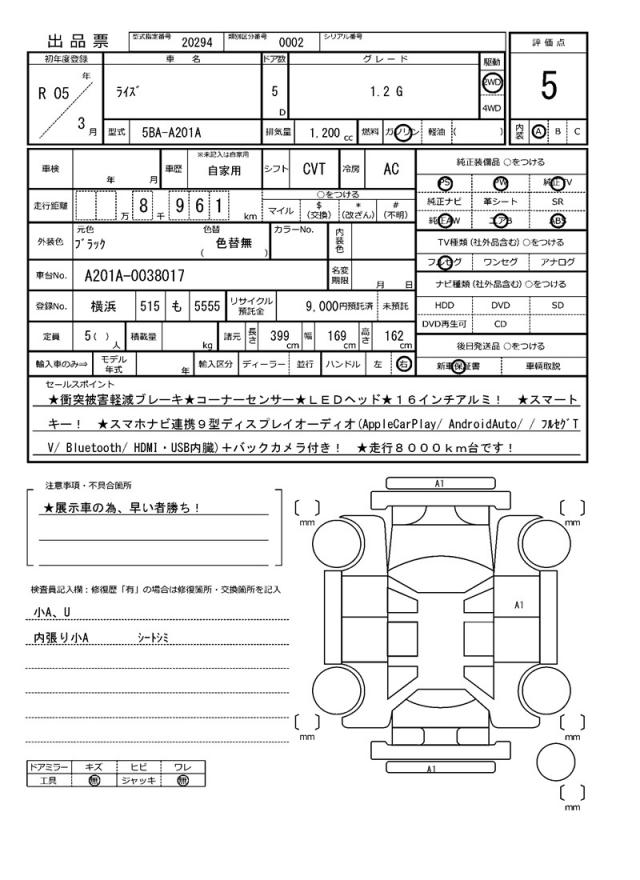 出品票 型式指定番号 20294 類別区分番号 0002 シリアル番号
評価点
5
内装 A B C
初年度登録 車名 ドア数 グレード 駆動
R 05 年 3 月 ﾗｲｽﾞ 5 D 1.2 G 2WD 4WD
型式 5BA-A201A 排気量 1.200 cc 燃料 ガソリン 軽油 ( )
車検 年 月 車歴 ※未記入は自家用 自家用 シフト CVT 冷房 AC
走行距離 万 8 千 9 6 1 km ○をつける
マイル $(交換) *(改ざん) #(不明)
外装色 元色 ﾌﾞﾗｯｸ 色替 色替無 ( ) カラーNo. 内装色
車台No. A201A-0038017 名変期限 月 日
登録No. 横浜 515 も 5555 リサイクル預託金 9,000円預託済 未預託
定員 5( )人 積載量 kg 諸元 長さ 399 cm 幅 169 cm 高さ 162 cm
輸入車のみ⇨ モデル年式 年 輸入区分 ディーラー 並行 ハンドル 左 右
純正装備品 ○をつける
PS PW 純正TV
純正ナビ 革シート SR
純正AW エアB ABS
TV種類 (社外品含む) ○をつける
フルセグ ワンセグ アナログ
ナビ種類 (社外品含む) ○をつける
HDD DVD SD
DVD再生可 CD
後日発送品 ○をつける
新車保証書 車輌取説
セールスポイント
★衝突被害軽減ブレーキ★コーナーセンサー★ＬＥＤヘッド★１６インチアルミ！ ★スマート
キー！ ★スマホナビ連携９型ディスプレイオーディオ(AppleCarPlay/ AndroidAuto/ / ﾌﾙｾｸﾞT
V/ Bluetooth/ HDMI・USB内臓)＋バックカメラ付き！ ★走行８０００ｋｍ台です！
注意事項・不具合箇所
★展示車の為、早い者勝ち！
検査員記入欄：修復歴「有」の場合は修復箇所・交換箇所を記入
小A、U
内張り小A ｼｰﾄｼﾐ
ドアミラー キズ ヒビ ワレ
工具 無 ジャッキ 無
A1
mm mm
A1
mm mm
A1
mm